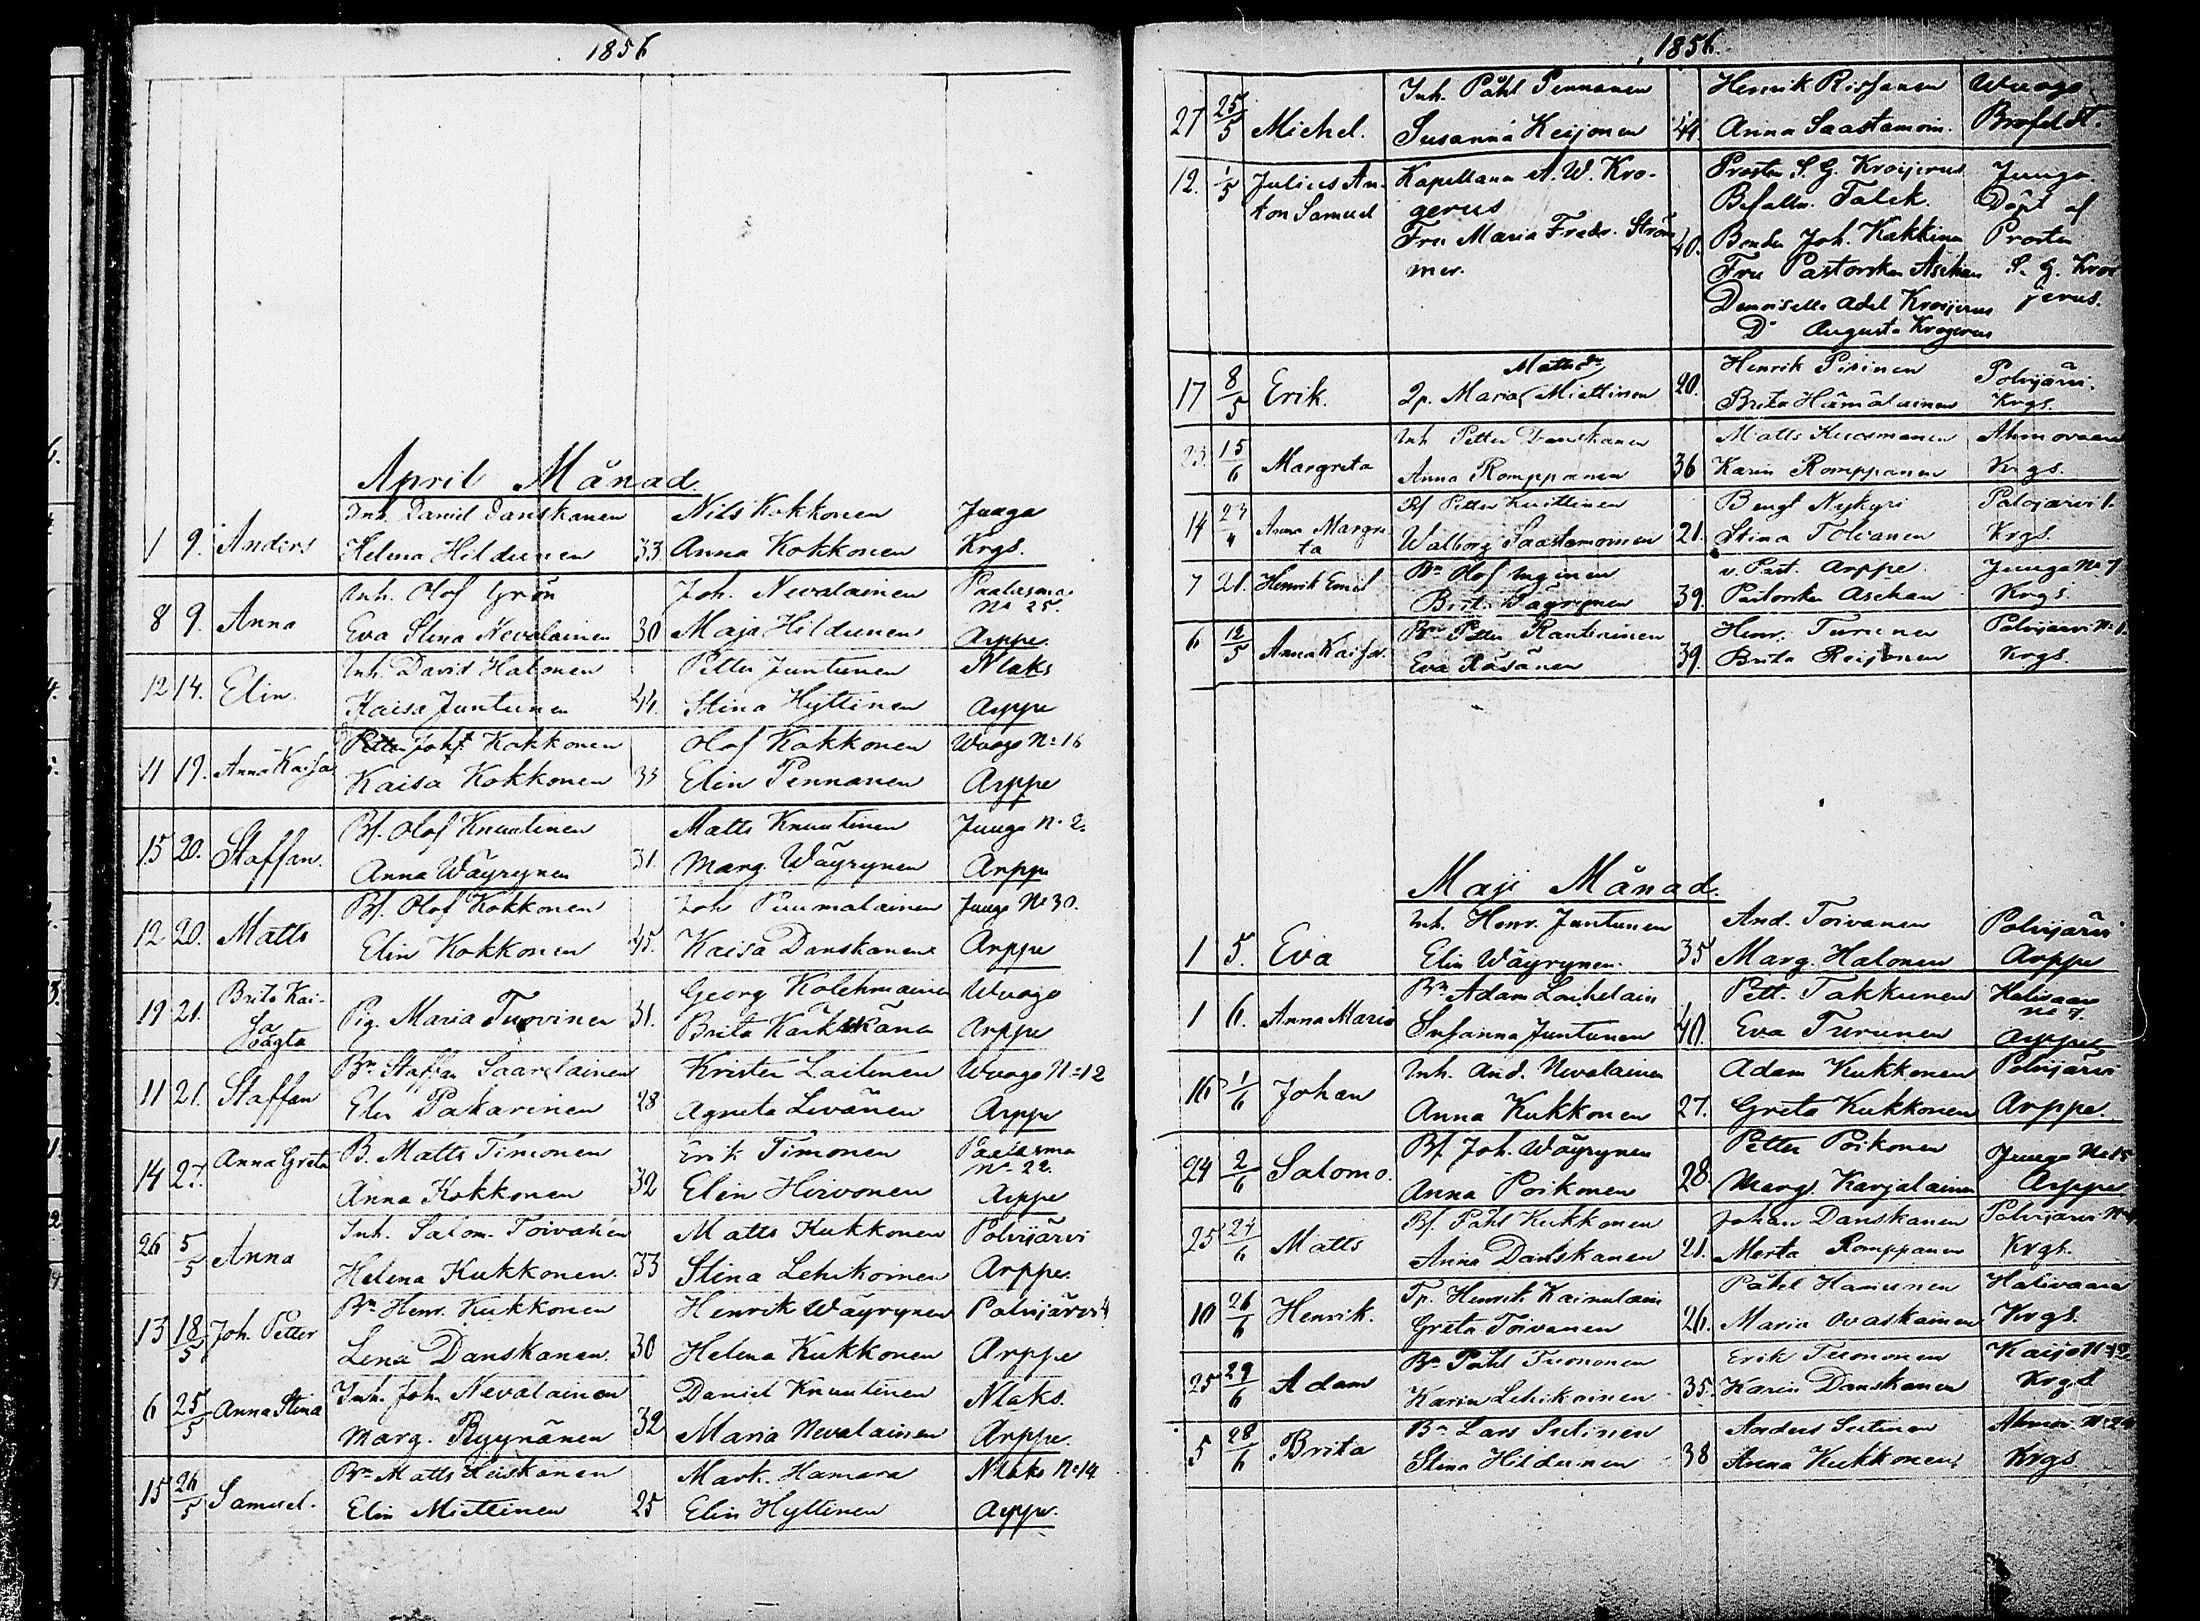 1856
April Månad.
Inh. Daniel Danskanen Nils Kokkonen Juuga
1 9. Anders Helena Hildunen 33 Anna Kokkonen Krgs.
Inh. Olof Grön Joh. Nevalainen Paalasmaa No 25.
8 9. Anna Eva Stina Nevalainen 30 Maja Hildunen Arppe.
Inh. David Halonen Petter Juntunen Nlaks
12 14. Elin. Kaisa Juntunen 44. Stina Hyttinen Arppe
Joh. Kokkonen Olof Kokkonen Wuogo No 16
11 19. Anna Kaisa Kaisa Kokkonen 35 Elin Pennanen Arppe
Bf. Olof Knuutinen Matts Knuutinen Juuga No 2.
15 20. Staffan. Anna Wäyrynen 31. Marg. Wäyrynen Arppe
Bf. Olof Kokkonen Joh. Puumalainen Juuga No 30.
12 20. Matts Elin Kokkonen 45. Kaisa Danskanen Arppe
Brita Kai- Georg Kolehmainen Wuogo
19 21. sa oägta Pig. Maria Turvinen 31. Brita Arppe
Bn Staffan Saarelainen Krister Laitinen Wuogo No 12
11 21. Staffan Elin Pakarinen 28 Agneta Levänen Arppe
B. Matts Timonen Erik Timonen Paalasmaa No 22.
14 27. Anna Greta Anna Kokkonen 32 Elin Hirvonen Arppe
Inh. Salom. Toivanen Matts Kukkonen Polvijärvi
26 5/5 Anna Helena Kukkonen. 33 Stina Lehikoinen Arppe.
Bn Henr. Kukkonen Henrik Wäyrynen Polvijärvi 4
13 18/5 Joh. Petter Lena Danskanen. 30 Helena Kukkonen Arppe
Inh. Joh. Nevalainen Daniel Knuutinen Nlaks.
6 25/5 Anna Stina Marg. Ryynänen 32 Maria Nevalainen Arppe.
Bn Matts Heiskanen Mark. Hamara Nlaks No 14
15 26/5 Samuel. Elin Miettinen 25 Elin Hyttinen Arppe.
1856.
Inh. Påhl Pennanen Henrik Rissanen Wuogo
27 25/5 Michel. Susanna Keijonen 44. Anna Saastamoin. Brofeldt.
12. 1/5 Julius An- Kapellanen A. W. Kro- Prosten S. G. Kroijerus Juuga.
ton Samuel gerus Befallm. Falck. Döpt af
Fru Maria Fredr. Ström 40. Bonden Joh. Kakkinen Prosten
mer. Fru Pastorskan Aschan S. G. Kroi
Demoiselle Adel Kroijerus jerus.
Do Augusta Krogerus
Mattsdr Henrik Pirinen Polvijärvi.
17 8/5 Erik. Qp. Maria Miettinen 20. Brita Hämäläinen Krgs.
Inh. Petter Danskanen Matts Kuosmanen Ahmovaara
23. 15/6 Margreta Anna Romppanen 36 Karin Romppanen Krgs.
Bf Petter Knuttinen Bengt Nykyri Polvijärvi
14 23/4 Anna Margre Walborg Saastamoinen 21. Stina Tolvanen Krgs.
ta
Bn Olof Inginen v. Past. Arppe. Juuga No 7
7 21. Henrik Emil Brit. Wäyrynen 39. Pastorskan Aschan Krgs.
Bn Petter Rantinen Henr. Turunen Polvijärvi No 1.
6 12/5 Anna Kaisa. Eva Räsänen 39. Brita Reijonen Krgs.
Maji Månad.
Inh. Henr. Juntunen And. Toivanen Polvijärvi
1 5. Eva Elin Wäyrynen. 35 Marg. Halonen Arppe
Bn Adam Louhelain Pett. Takkunen Halivaara No 7.
1 6. Anna Maria Susanna Juntunen 40. Eva Turunen Arppe
Inh. And. Nevalainen Adam Kukkonen Polvijärvi
16 1/6 Johan Anna Kukkonen 27. Greta Kukkonen Arppe.
Bf Joh. Wäyrynen Petter Poikonen Juuga No 15
24 2/6 Salomo. Anna Poikonen 28. Marg. Karjalainen Arppe
Bf. Påhl Kukkonen Johan Danskanen Polvijärvi
25 24/6 Matts Anna Danskanen 21. Merta Romppanen Krgs.
Tp. Henrik Kainulain Påhl Hamunen Halivaara
10 26/6 Henrik. Greta Toivanen 26. Maria Ovaskainen Krgs.
Bn Påhl Tuononen Erik Tuononen
25 29/6 Adam Karin Lehikoinen 35. Karin Danskanen Krgs
Bn Lars Sutinen Anders Sutinen
5 28/6 Brita Stina Hildunen 38 Anna Kukkonen. Krgs